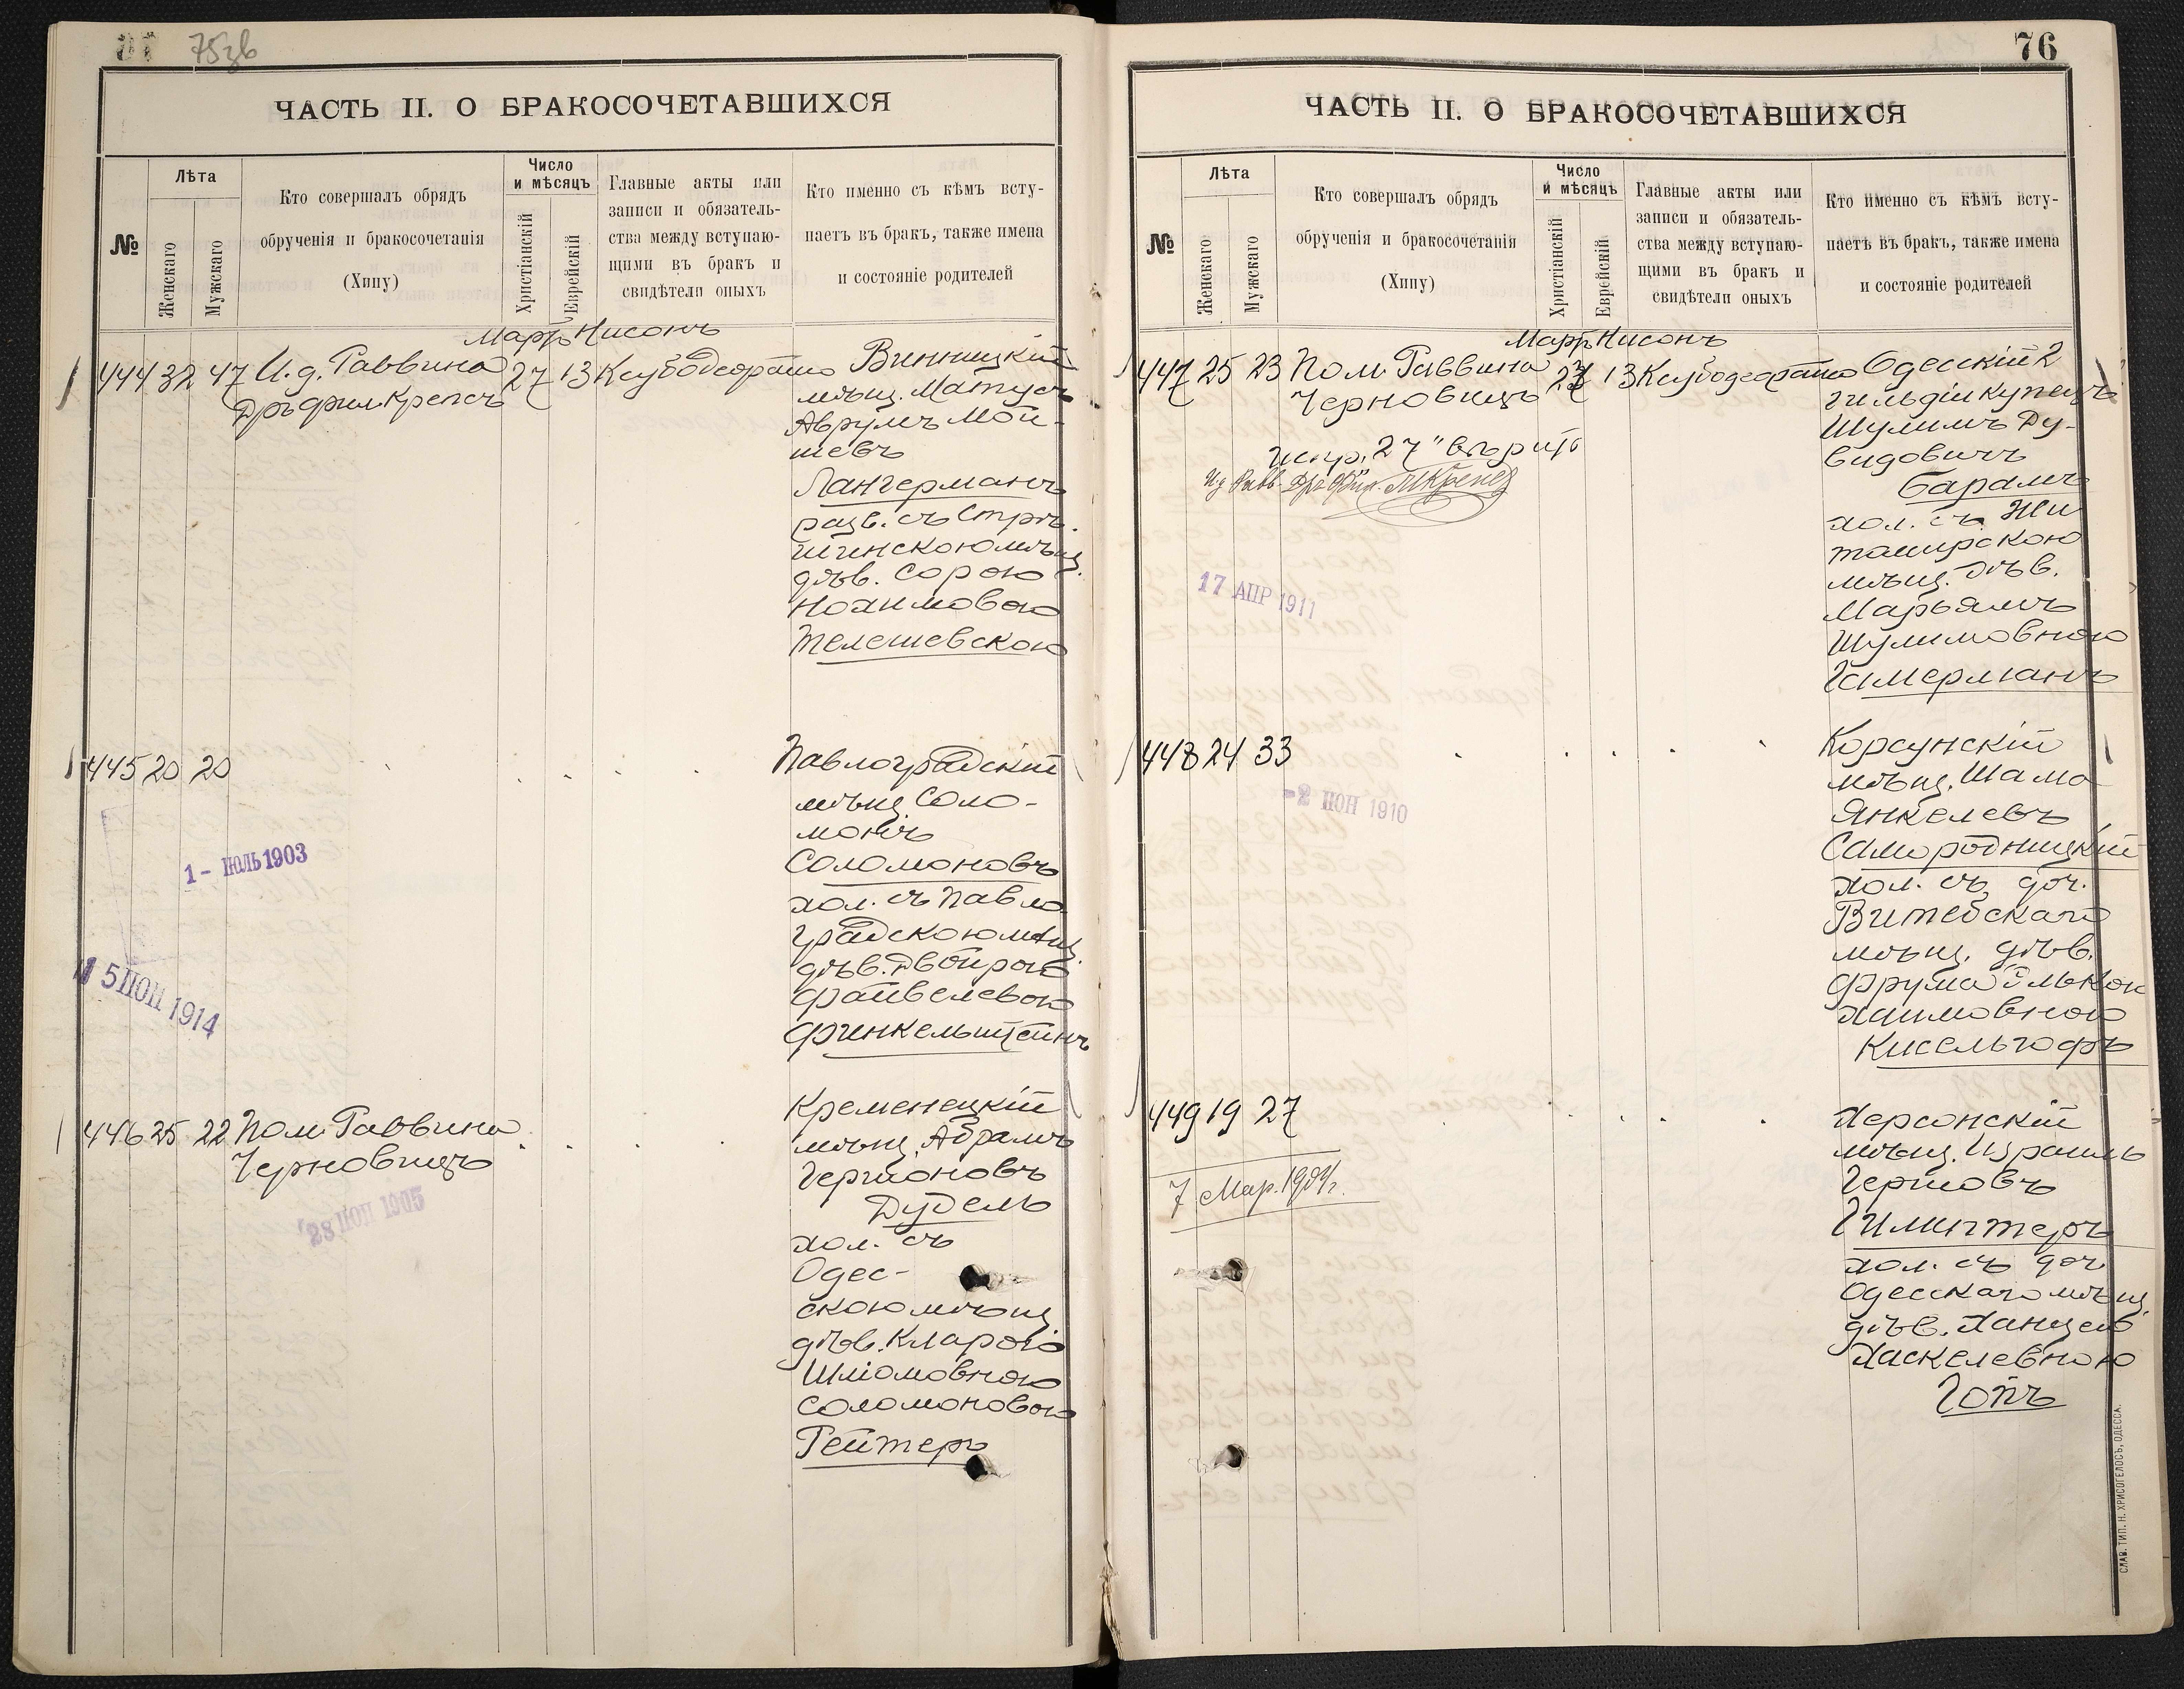 75зв
ЧАСТЬ II. О БРАКОСОЧЕТАВШИХСЯ
№
Лѣта
Женскаго
Мужскаго
Кто совершалъ обрядъ
обрученія и бракосочетанія
(Хипу)
Число
и мѣсяцъ
Христіанскій
Еврейскій
Главные акты или
записи и обязатель-
ства между вступаю-
щими въ бракъ и
свидѣтели оныхъ
Кто именно съ кѣмъ всту-
паетъ въ бракъ, также имена
и состояніе родителей
Мартъ Нисонъ
444 32 47 И.д. Раввина 27 13 Ксубодеорайто Винницкій
Дръ фил. Крепсъ
мѣщ. Матусъ
Аврумъ Мой-
шевъ
Лангерманъ
разв. съ
мѣщ.
дѣв. Сорою
Нохимовою
Телешевскою
445 20 20 Павлоградскій
мѣщ. Соло-
монъ
Соломоновъ
хол. съ Павло
градскою мѣщ.
дѣв. Двойрою
Файвелевою
Финкельштейнъ
1 - ІЮЛЬ 1903
15 ІЮН 1914
446 25 22 Пом. Раввина
Черновицъ
28 ІЮН 1905
Кременецкій
мѣщ. Абрамъ
Гершоновъ
Дудель
хол. съ
Одес-
скою мѣщ.
дѣв. Кларою
Шліомовною
Соломоновою
Рейтеръ
76
ЧАСТЬ II. О БРАКОСОЧЕТАВШИХСЯ
№
Лѣта
Женскаго
Мужскаго
Кто совершалъ обрядъ
обрученія и бракосочетанія
(Хипу)
Число
и мѣсяцъ
Христіанскій
Еврейскій
Главные акты или
записи и обязатель-
ства между вступаю-
щими въ бракъ и
свидѣтели оныхъ
Кто именно съ кѣмъ всту-
паетъ въ бракъ, также имена
и состояніе родителей
Мартъ Нисонъ
447 25 23 Пом. Раввина 27 13 Ксубодеорайто Одесскій 2
Черновицъ
гильдіи купецъ
Шулимъ Ду-
видовичъ
Барамъ
хол. съ Жи
томирскою
мѣщ. дѣв.
Марьямъ
Шулимовною
Гимерманъ
Испр. "27" вѣрить
И д Равв. Дръ Фил. Крепсъ
17 АПР 1911
448 24 33 Корсунскій
мѣщ. Шама
Янкелевъ
Самородницкій
хол. съ доч.
Витебскаго
мѣщ. дѣв.
Фрума Элькою
Хаимовною
Кисельгофъ
-2 ІЮН 1910
449 19 27 Херсонскій
мѣщ. Израиль
Гершовъ
Гимигтеръ
хол. съ доч
Одесскаго мѣщ.
дѣв. Ханцею
Хаскелевною
Гопъ
7 Мар. 1904 г.
СЛАВ. ТИП. Н. ХРИСОГЕЛОСЪ, ОДЕССА.